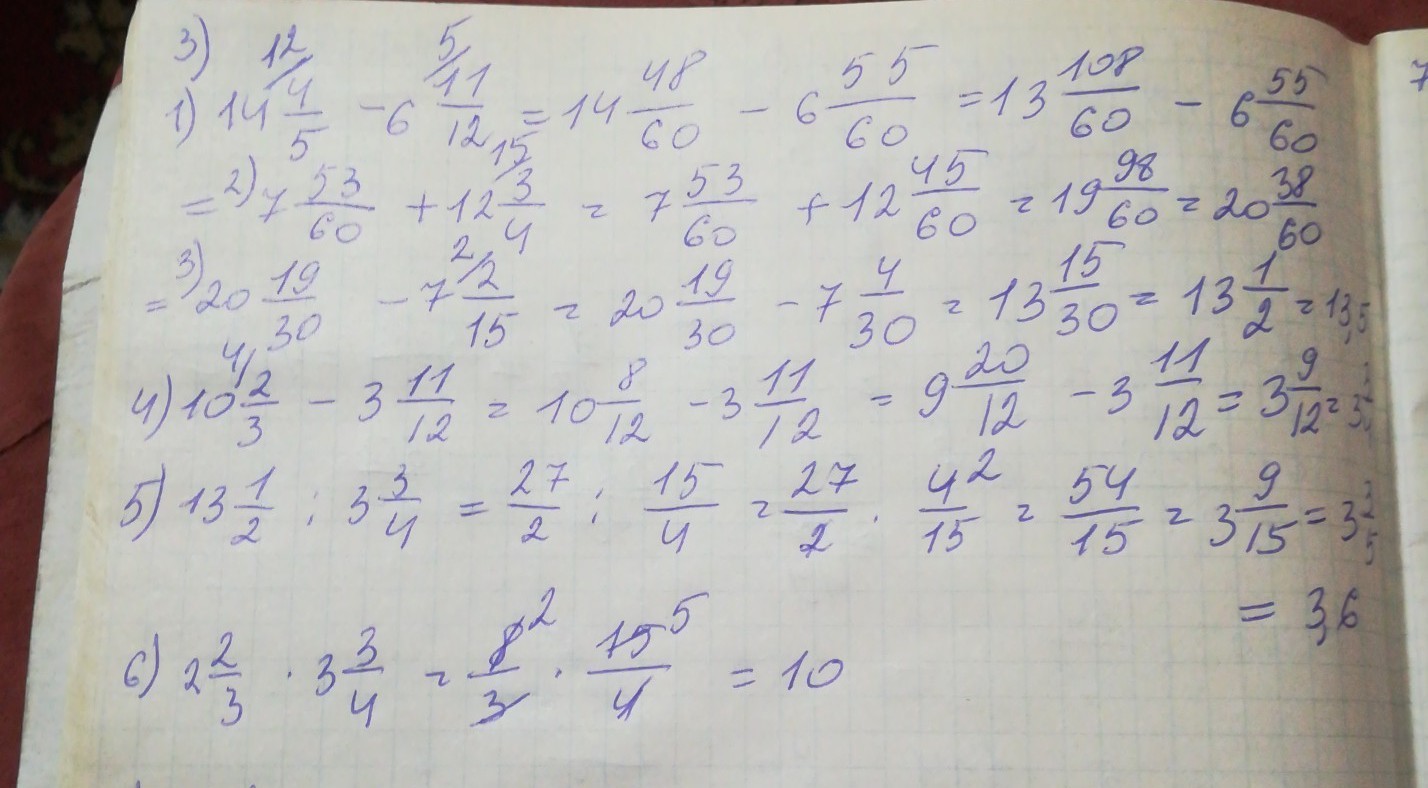 3)
1) 14 4/5 (12/) - 6 11/12 (5/) = 14 48/60 - 6 55/60 = 13 108/60 - 6 55/60
= 2) 7 53/60 + 12 3/4 (15/) = 7 53/60 + 12 45/60 = 19 98/60 = 20 38/60
= 3) 20 19/30 - 7 2/15 (2/) = 20 19/30 - 7 4/30 = 13 15/30 = 13 1/2 = 13,5
4) 10 2/3 (4/) - 3 11/12 = 10 8/12 - 3 11/12 = 9 20/12 - 3 11/12 = 3 9/12 = 3
5) 13 1/2 : 3 3/4 = 27/2 : 15/4 = 27/2 · 4²/15 = 54/15 = 3 9/15 = 3 3/5
= 3,6
6) 2 2/3 · 3 3/4 = 8²/3 · 15⁵/4 = 10
7